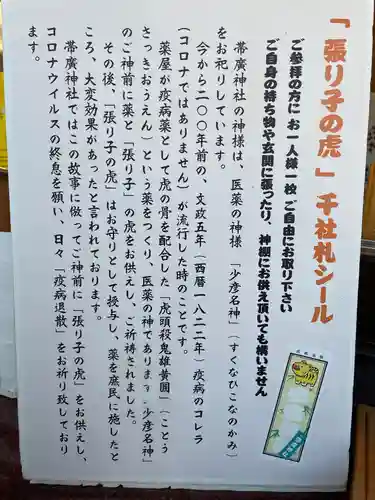 「張り子の虎」千社札シール
ご参拝の方にお一人様一枚ご自由にお取り下さい
ご自身の持ち物や玄関に張ったり、神棚にお供え頂いても構いません
帯廣神社の神様は、医薬の神様「少彦名神」(すくなひこなのかみ)
をお祀りしています。
今から二〇〇年前の、文政五年(西暦一八二二年)疫病のコレラ
(コロナではありません)が流行した時のことです。
薬屋が疫病薬として虎の骨を配合した「虎頭殺鬼雄黄圓」(ことう
さっきおうえん)という薬をつくり、医薬の神であります「少彦名神」
のご神前に薬と「張り子」の虎をお供えし、ご祈祷されました。
その後、「張り子の虎」はお守りとして授与し、薬を庶民に施したと
ころ、大変効果があったと言われております。
帯廣神社ではこの故事に倣ってご神前に「張り子の虎」をお供えし、
コロナウイルスの終息を願い、日々「疫病退散」をお祈り致しており
ます。